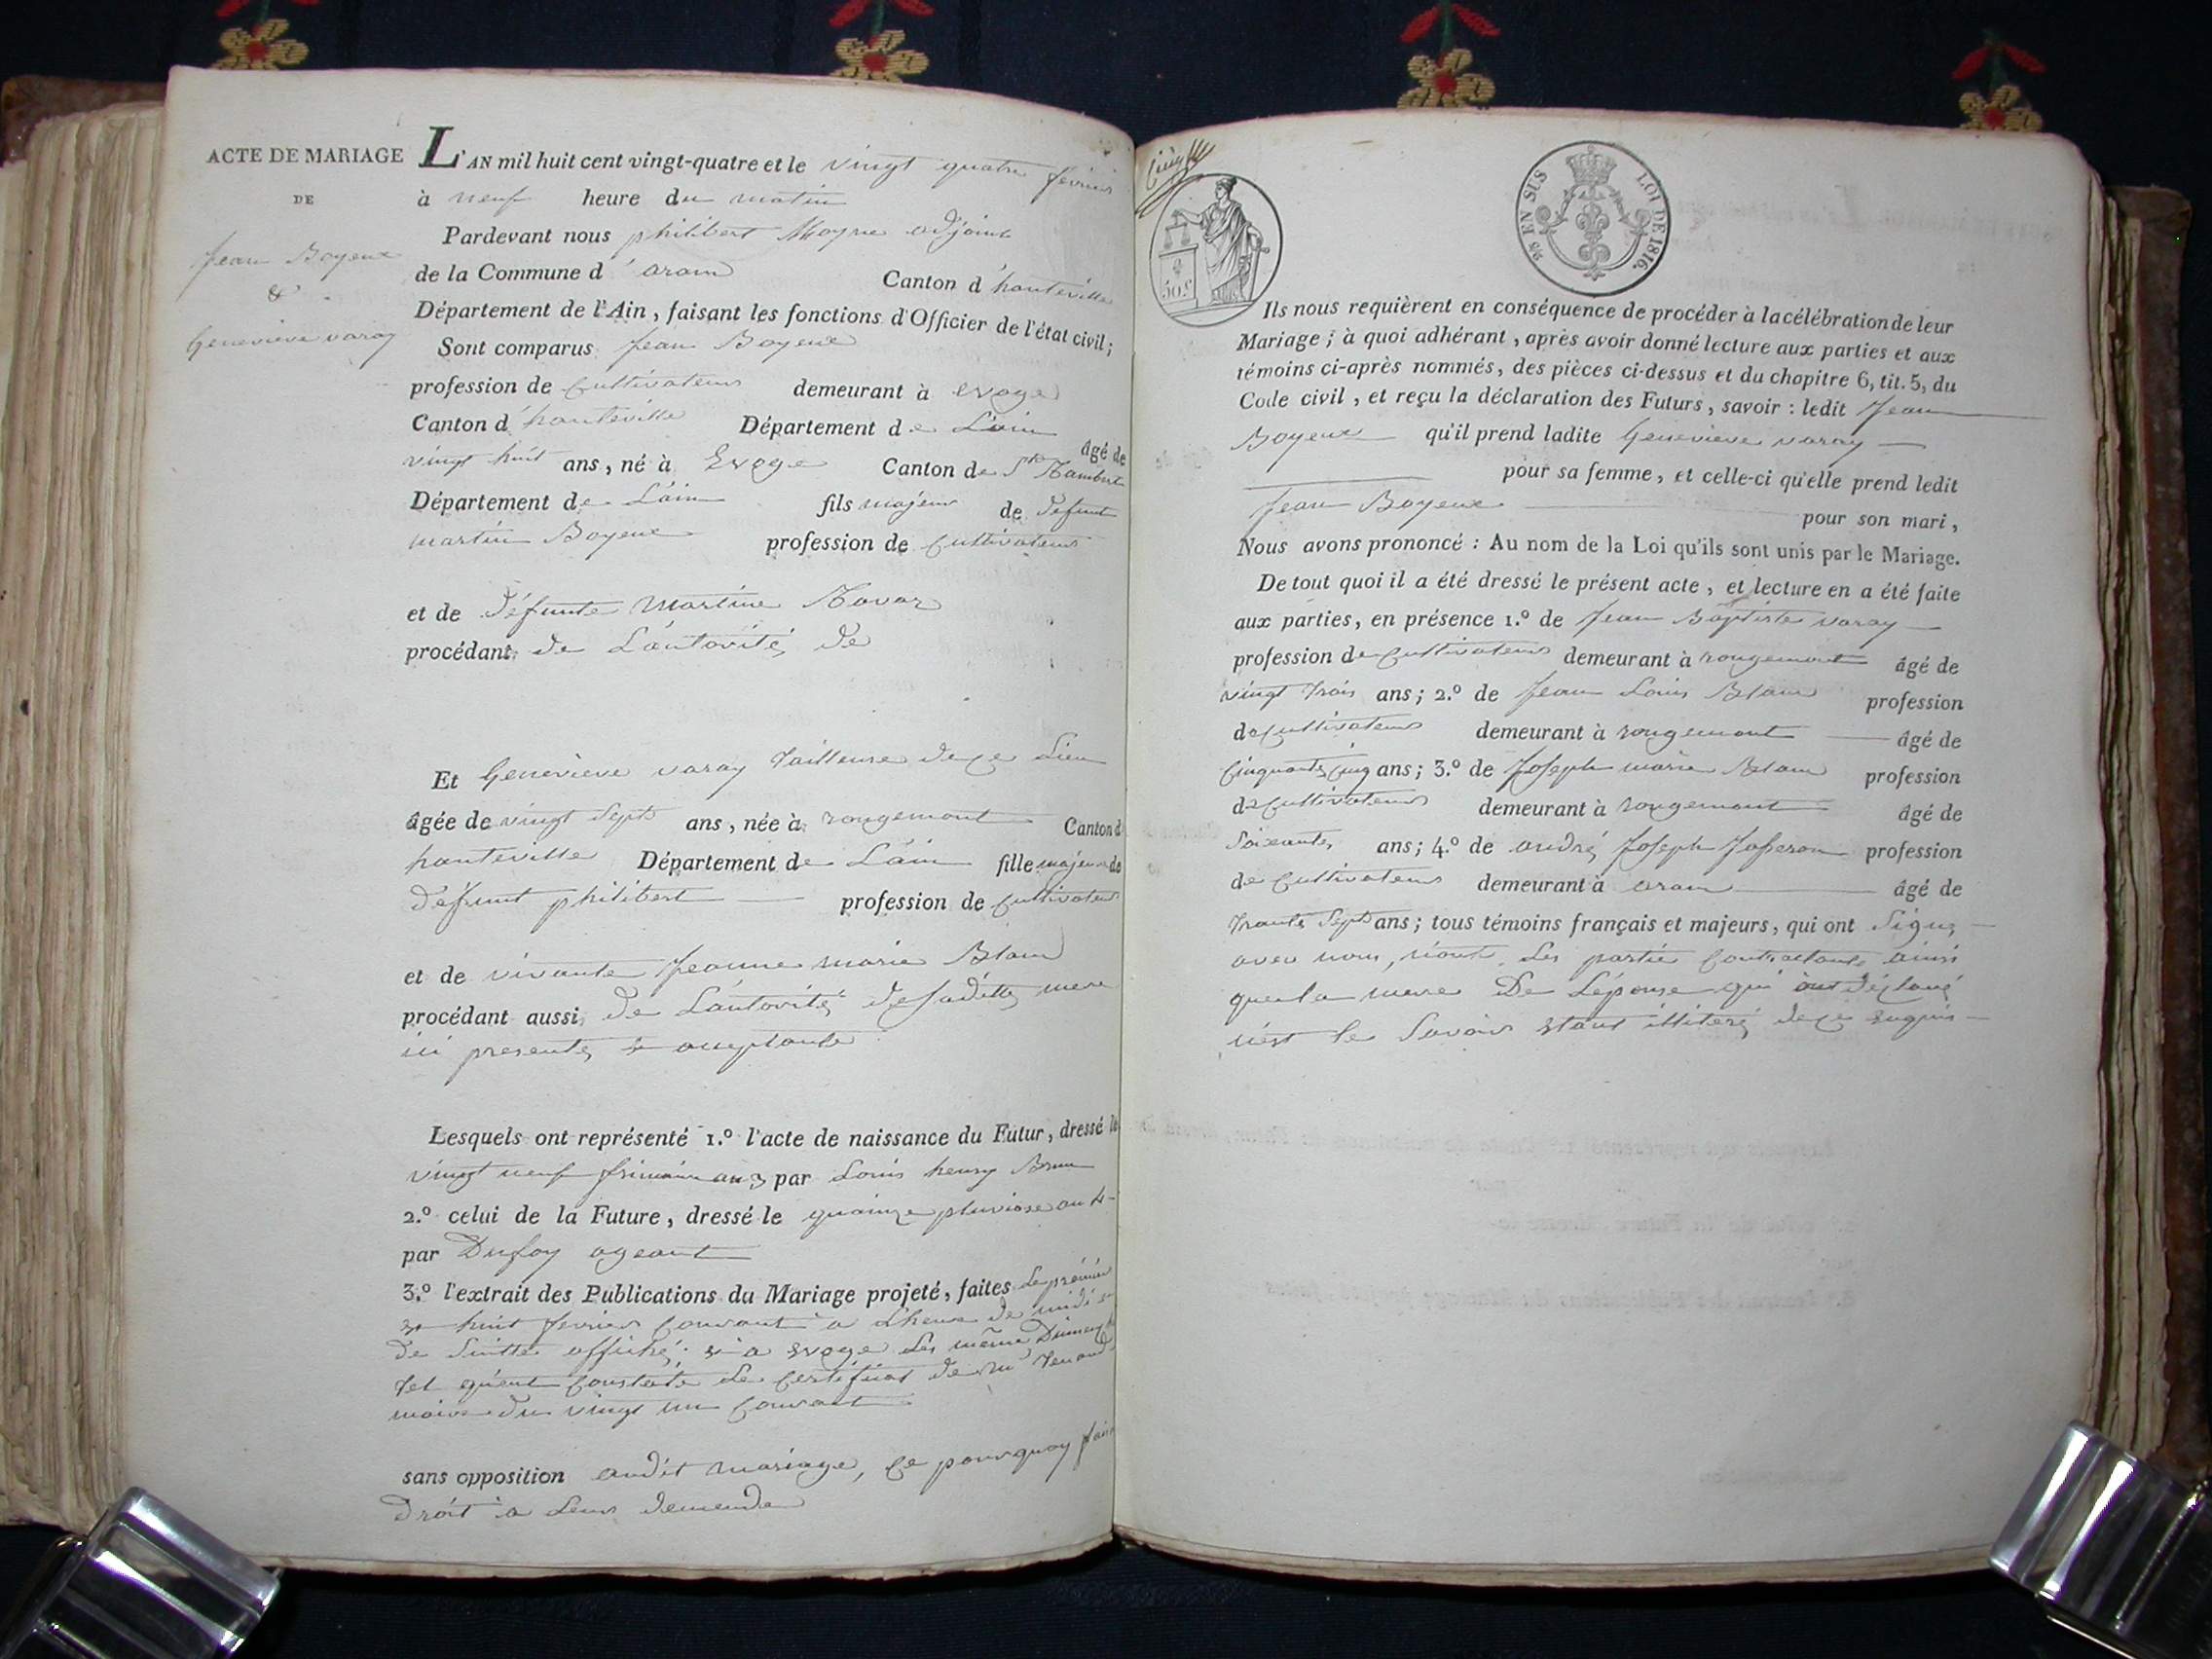 ACTE DE MARIAGE
DE
Jean Boyeux
&
Genevieve varay
L'AN mil huit cent vingt-quatre et le vingt quatre fevrier
à neuf heure du matin
Pardevant nous philibert Moyne adjoint
de la Commune d'aran Canton d'hauteville
Département de l'Ain, faisant les fonctions d'Officier de l'état civil;
Sont comparus Jean Boyeux
profession de Cultivateur demeurant à evoge
Canton d'hauteville Département de L'ain âgé de
vingt huit ans, né à Evoge Canton de St Rambert
Département de L'ain fils majeur de defunt
martin Boyeux profession de Cultivateur
et de défunte Martine
procédant de L'autorité de
Et Genevieve varay tailleuse de ce Lieu
âgée de vingt Sept ans, née à rougemont Canton d
hauteville Département de L'ain fille majeure de
défunt philibert profession de Cultivateur
et de vivante Jeanne marie Blanc
procédant aussi de L'autorité de saditte mere
ici presente & aceptante
Lesquels ont représenté 1.º l'acte de naissance du Futur, dressé le
vingt neuf frimaire an 3 par Louis henry Brun
2.º celui de la Future, dressé le quainze pluviose an 4
par Dufoy ageant
3.º l'extrait des Publications du Mariage projeté, faites Le prémier
& huit fevrier Courant a L'heure de midi
de Suitte affiché & a evoge Les même Dimanche
tel qu'ent Constate Le Certificat de Mr
maire du vingt un Courant
sans opposition audit mariage, Ce pourquoy fair
Droit a Leur demende
50 c
25 EN SUS LOI DE 1816.
Ils nous requièrent en conséquence de procéder à la célébration de leur
Mariage; à quoi adhérant, après avoir donné lecture aux parties et aux
témoins ci-après nommés, des pièces ci-dessus et du chapitre 6, tit. 5, du
Code civil, et reçu la déclaration des Futurs, savoir: ledit Jean
Boyeux qu'il prend ladite Genevieve varay
pour sa femme, et celle-ci qu'elle prend ledit
Jean Boyeux pour son mari,
Nous avons prononcé: Au nom de la Loi qu'ils sont unis par le Mariage.
De tout quoi il a été dressé le présent acte, et lecture en a été faite
aux parties, en présence 1.º de Jean Baptiste varay
profession de Cultivateur demeurant à rougemont âgé de
vingt trois ans; 2.º de Jean Louis Blanc profession
de Cultivateur demeurant à rougemont âgé de
Cinquante Cinq ans; 3.º de Joseph marie Blanc profession
de Cultivateur demeurant à rougemont âgé de
Soixante ans; 4.º de andré Joseph Josseron profession
de Cultivateur demeurant à aran âgé de
trante Sept ans; tous témoins français et majeurs, qui ont Signé
avec nous, n'ont Les partie Contractante ainsi
que La mere De L'épouse qui ont déclaré
n'est le Savoir etant illiteré de ce enquis